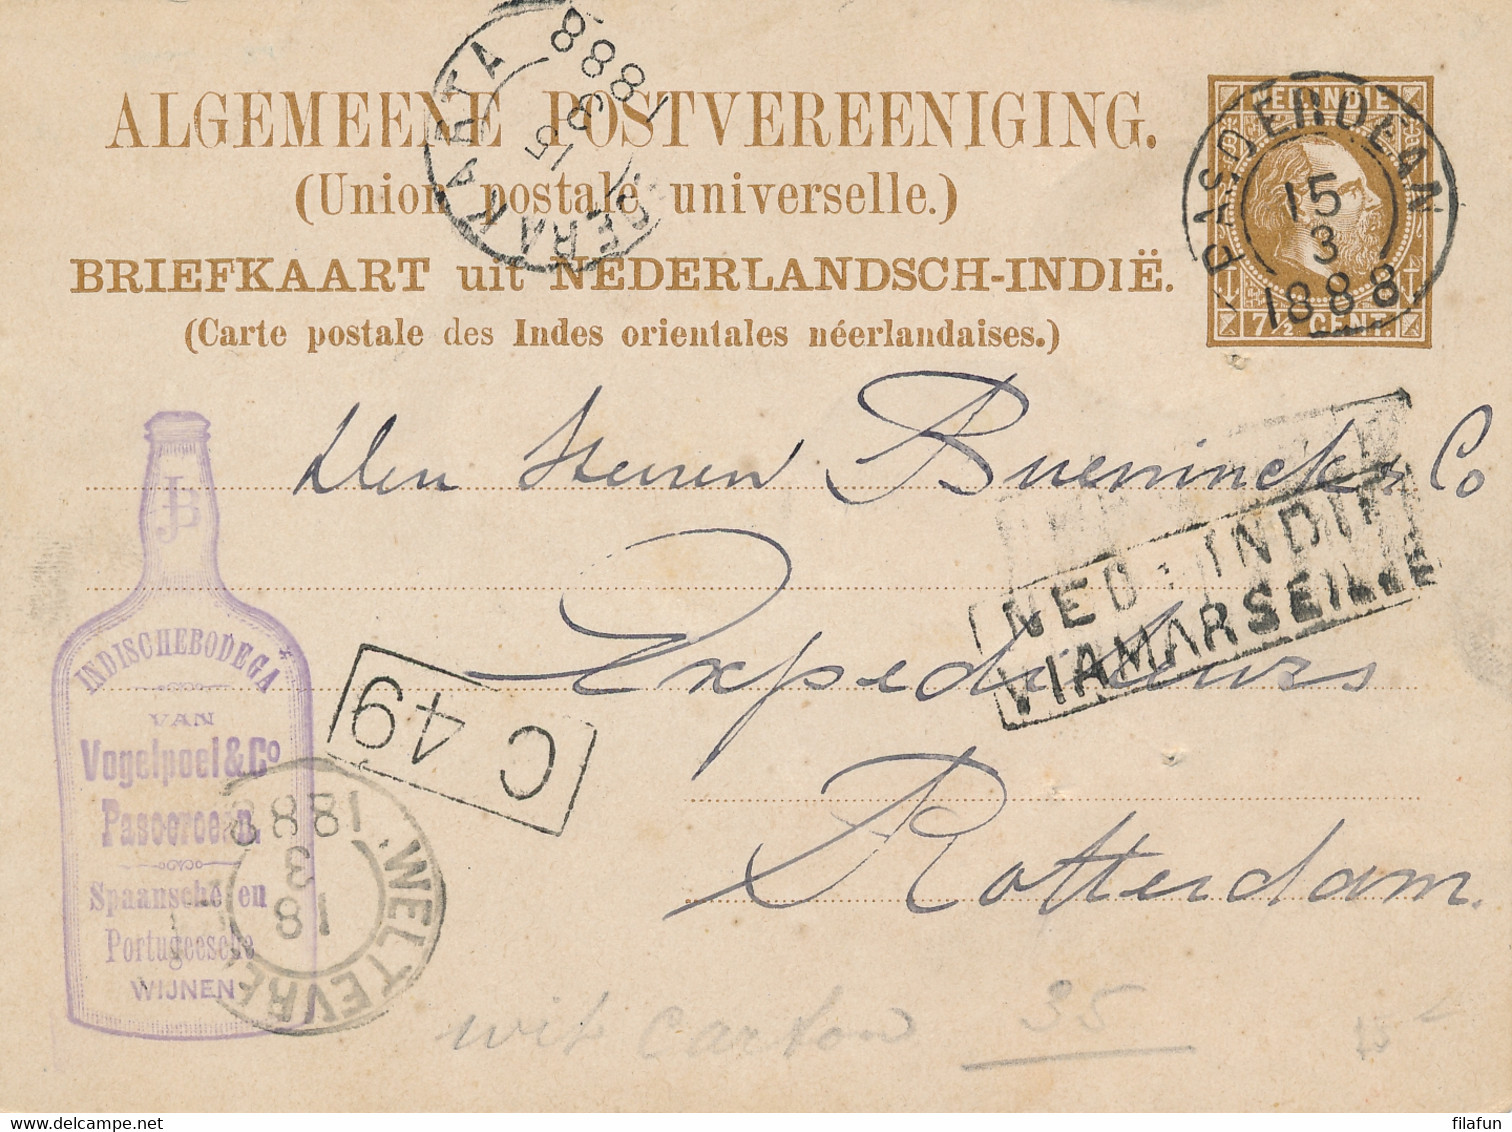 ALGEMEENE POSTVEREENIGING.
(Union postale universelle.)
BRIEFKAART uit NEDERLANDSCH-INDIË.
(Carte postale des Indes orientales néerlandaises.)
NED. INDIE
7½ CENT.
15
3
1888
SOERAKARTA
15
3
1888
Den Heeren Bueninck & Co
Expediteurs
Rotterdam.
NED: INDIE
VIA MARSEILLE
C 49
JB
INDISCHE BODEGA
VAN
Vogelpoel & Co
Pasoeroean
Spaansche en
Portugeesche
WIJNEN
WELTEVRE
18
3
1888
wit carton 35
delcampe.net
filafun